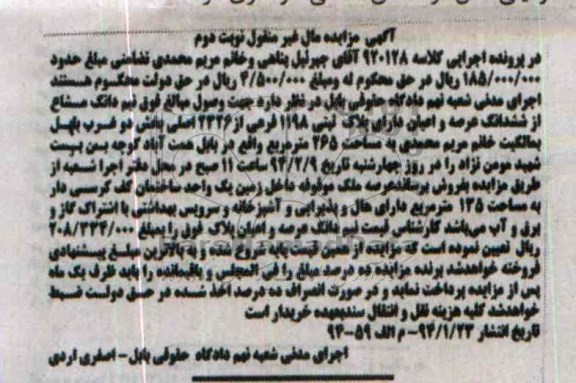 آگهی مزایده مال غیر منقول نوبت دوم
در پرونده اجرایی کلاسه ۹۲۰۱۲۸ آقای جبرئیل پناهی و خانم مریم محمدی تضامنی مبلغ حدود
۱۸۵/۰۰۰/۰۰۰ ریال در حق محکوم له ومبلغ ۴/۵۰۰/۰۰۰ ریال در حق دولت محکوم هستند
اجرای مدنی شعبه نهم دادگاه حقوقی بابل در نظر دارد جهت وصول مبالغ فوق نیم دانگ مشاع
از ششدانگ عرصه و اعیان دارای پلاک ثبتی ۱۱۹۸ فرعی از ۲۳۲۶ اصلی بخش دو غرب بابل
بمالکیت خانم مریم محمدی به مساحت ۲۶۵ مترمربع واقع در بابل همت آباد کوچه بسن بیست
شهید مومن نژاد را در روز چهارشنبه تاریخ ۹۴/۲/۹ ساعت ۱۱ صبح در محل دفتر اجرا شعبه از
طریق مزایده بفروش برساند عرصه ملک موقوفه داخل زمین یک واحد ساختمان کف کرسی دار
به مساحت ۱۳۵ مترمربع دارای هال و پذیرایی و آشپزخانه و سرویس بهداشتی با اشتراک گاز و
برق و آب می‌باشد کارشناس قیمت نیم دانگ عرصه و اعیان پلاک فوق را بمبلغ ۲۰۸/۳۳۴/۰۰۰
ریال تعیین نموده است که مزایده از همین قیمت پایه شروع شده و به بالاترین مبلغ پیشنهادی
فروخته خواهدشد برنده مزایده ده درصد مبلغ را فی المجلس و باقیمانده را باید ظرف یک ماه
پس از مزایده پرداخت نماید و در صورت انصراف ده درصد اخذ شده در حق دولت ضبط
خواهدشد کلیه هزینه نقل و انتقال سند بعهده خریدار است
تاریخ انتشار ۹۴/۱/۲۳ - م الف ۵۹-۹۴
اجرای مدنی شعبه نهم دادگاه حقوقی بابل - اصغری اردی